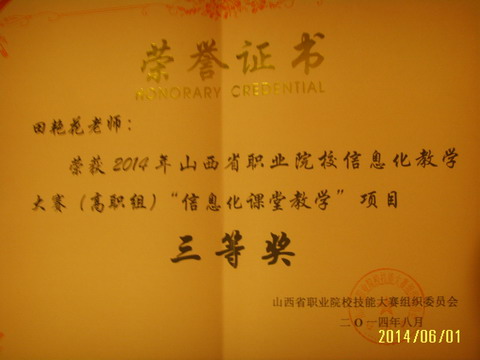 荣誉证书
HONORARY CREDENTIAL
田艳花老师：
荣获2014年山西省职业院校信息化教学
大赛（高职组）“信息化课堂教学”项目
三等奖
山西省职业院校技能大赛组织委员会
二〇一四年八月
2014/06/01